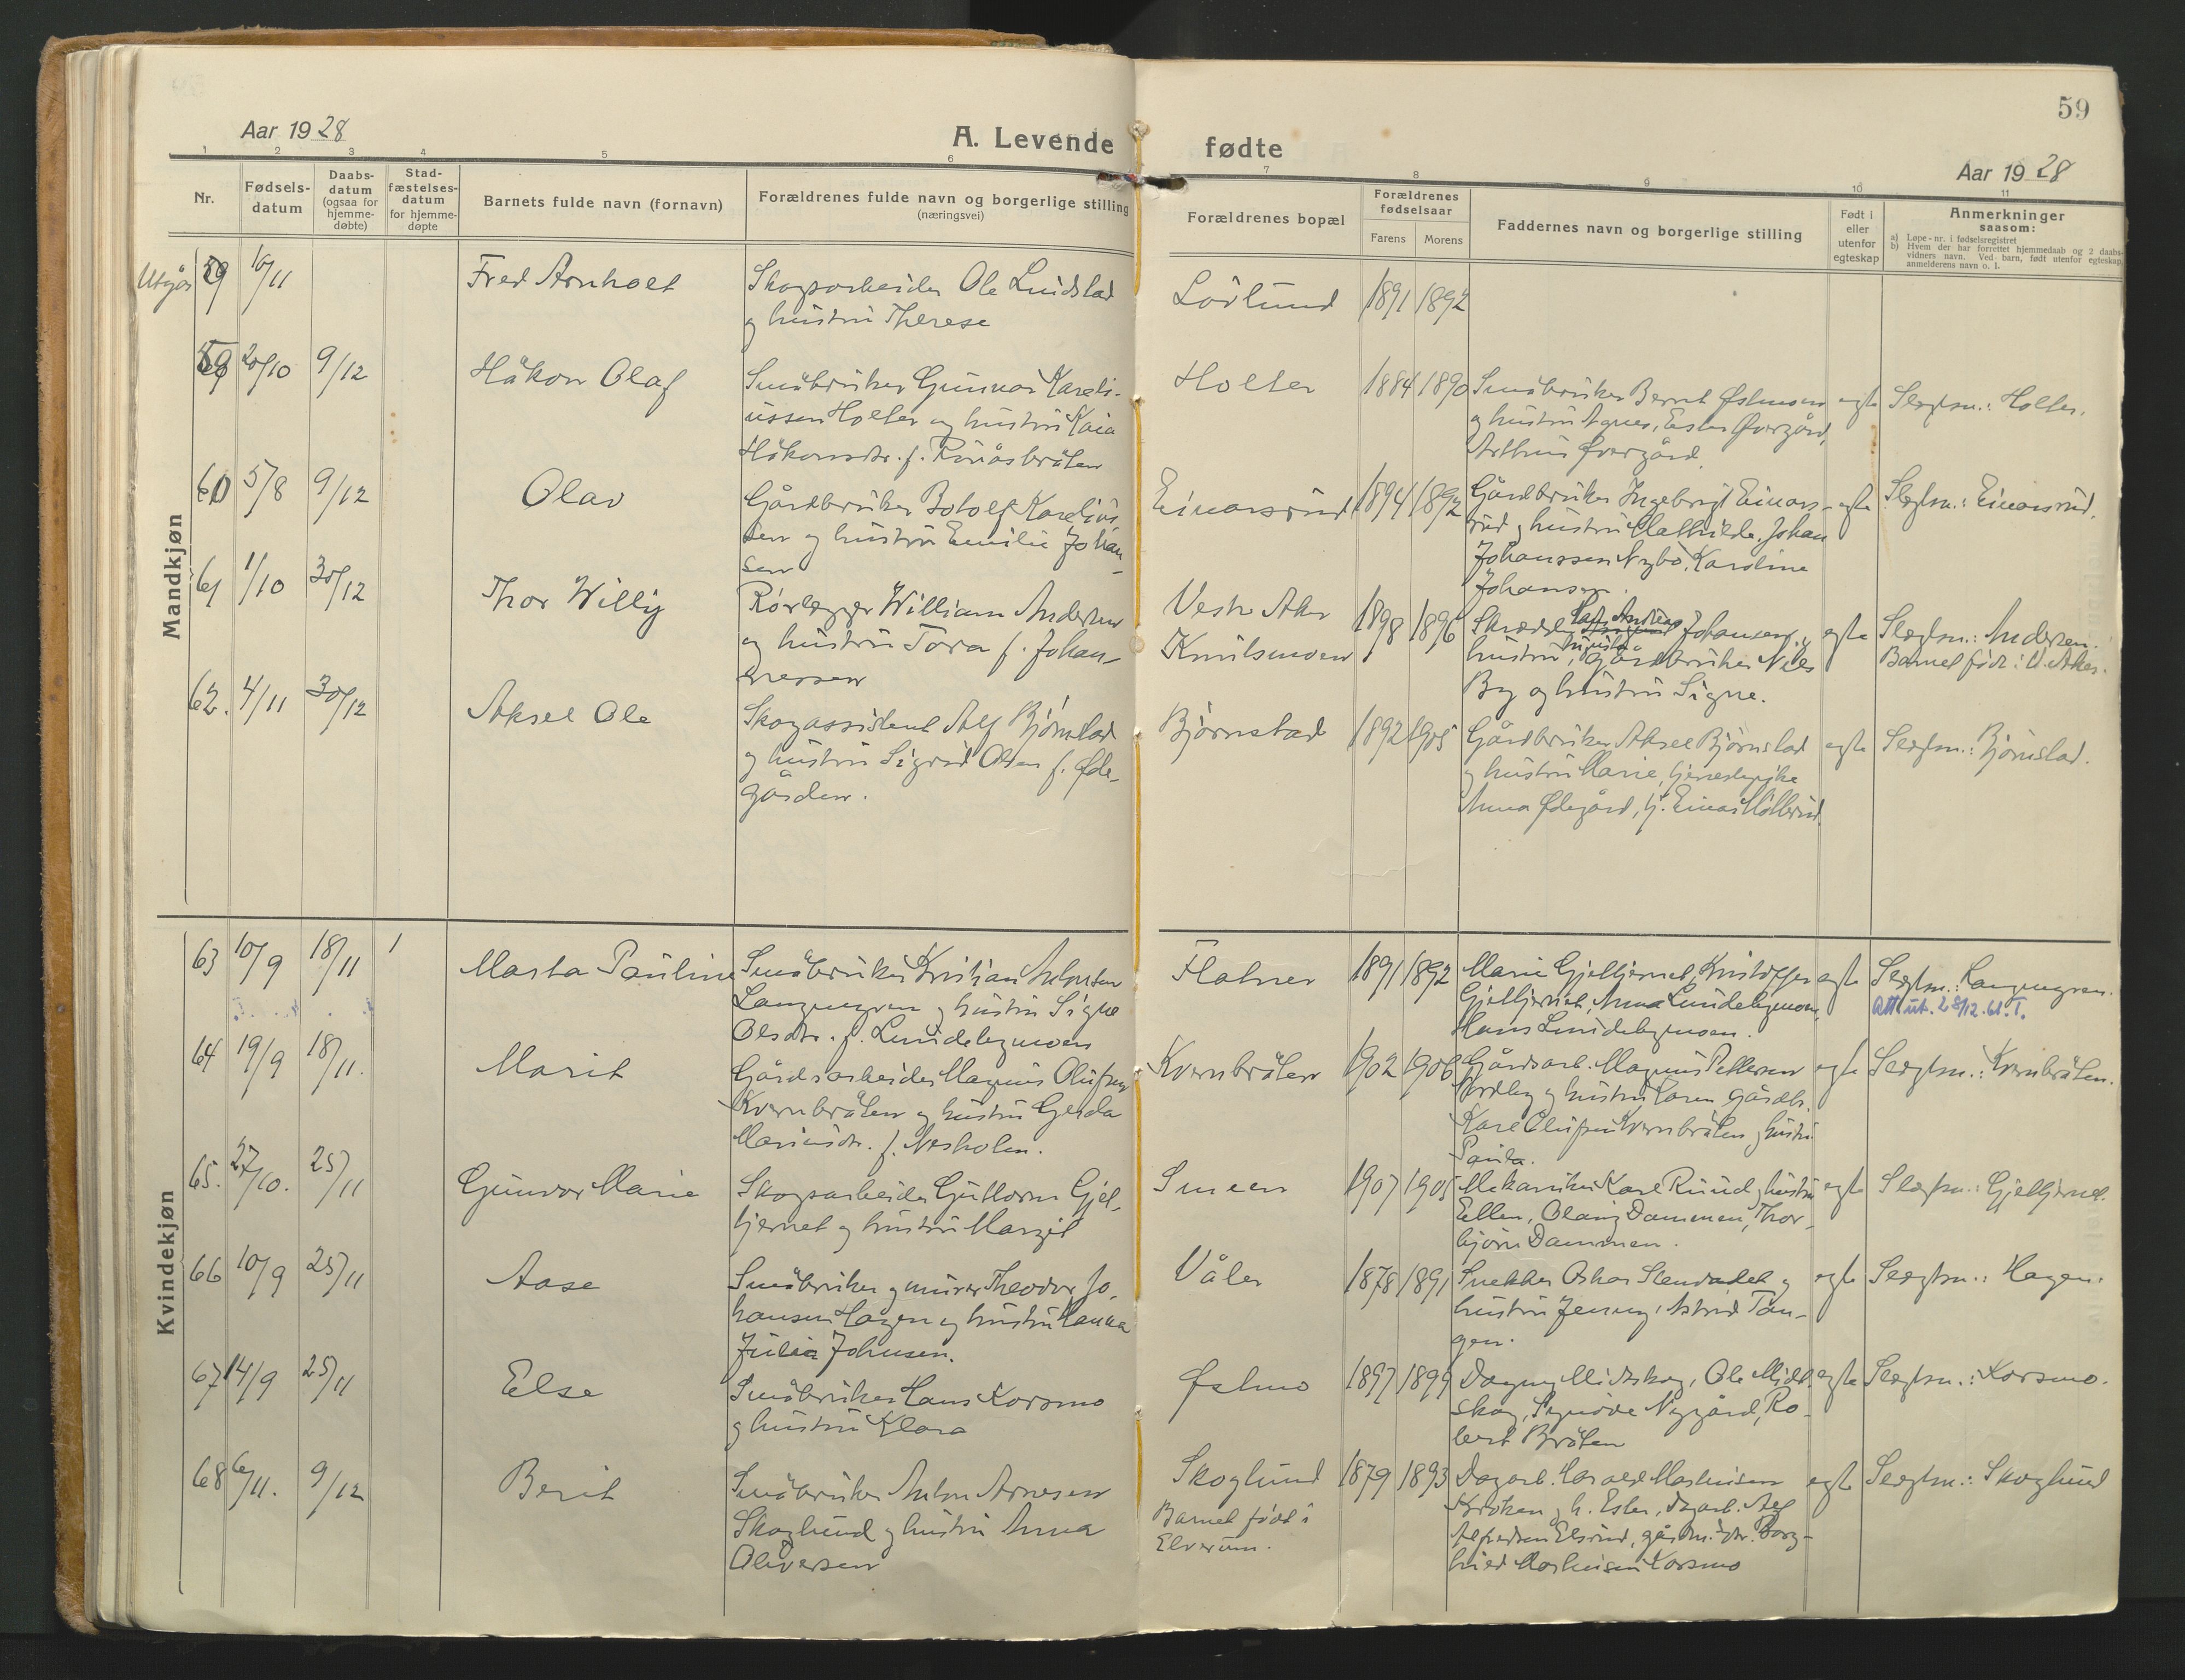 59
Aar 1928
A. Levende fødte
Aar 1928
1 2 3 4 5 6 7 8 9 10 11
Nr.
Fødsels-
datum
Daabs-
datum
(ogsaa for
hjemme-
døbte)
Stad-
fæstelses-
datum
for hjemme-
døpte
Barnets fulde navn (fornavn)
Forældrenes fulde navn og borgerlige stilling
(næringsvei)
Forældrenes bopæl
Forældrenes
fødselsaar
Farens Morens
Faddernes navn og borgerlige stilling
Født i
eller
utenfor
egteskap
Anmerkninger
saasom:
a) Løpe-nr. i fødselsregistret
b) Hvem der har forrettet hjemmedaab og 2 daabs-
vidners navn. Ved barn, født utenfor egteskap,
anmelderens navn o. l.
Mandkjøn
Utgår 59 16/11
Fred Arnholt
Skogsarbeider Ole Lindstad
og hustru Therese
Lørlund
1891 1892
59 20/10 9/12
Håkon Olaf
Småbruker Gunnar Kareli-
ussen Holter og hustru Kaia
Håkonsdtr. f. Rønåsbråten
Holter
1884 1890
Småbruker Bernt Østmoen
og hustru Agnes, Ester Øvergård,
Arthur Øvergård
egte
Slegtsn.: Holter.
60 5/8 9/12
Olav
Gårdbruker Botolf Kareliu-
sen og hustru Emilie Johan-
sen
Einarsrud
1894 1892
Gårdbruker Ingebrigt Einars-
rud og hustru Mathilde, Johan
Johanssen Nybo, Karoline
Johansen.
egte
Slegtsn.: Einarsrud.
61 1/10 30/12
Thor Willy
Rørlegger William Andersen
og hustru Tora f. Johan-
nessen
Vestre Aker
Knutsmoen
1898 1896
Skrædder Lars Andreas Johansen og
hustru, gårdbruker Nils
By og hustru Signe.
egte
Slegtsn.: Andersen.
Barnet født i V. Aker.
62. 4/11 30/12
Aksel Ole
Skogassistent Alf Bjørnstad
og hustru Sigrid Olsen f. Øde-
gården.
Bjørnstad
1892 1905
Gårdbruker Aksel Bjørnstad
og hustru Marie, tjenestepike
Anna Ødegård, tj. Einar Møllerud.
egte
Slegtsn.: Bjørnstad.
Kvindekjøn
63 10/9 18/11 1
Marta Pauline
Småbruker Kristian
Langmyren og hustru Signe
Olsdtr. f. Lundebymoen
Flatner
1891 1892
Marie Gjeltjernet, Kristoffer
Gjeltjernet, Anna Lundebymoen,
Hans Lundebymoen.
egte
Slegtsn.: Langmyren.
Att. ut. 28/12.61. T.
64 19/9 18/11.
Marit
Gårdsarbeider Magnus Olufsen
Kvernbråten og hustru Gerda
Mariusdr. f. Nesholen.
Kvernbråten
1902 1906
Gårdsarb. Magnus Pettersen
Nordby og hustru Karen, gårdbr.
Karl Olufsen Kvernbråten og hustru
Paula.
egte
Slegtsn.: Kvernbråten.
65. 27/10. 25/11
Gunvor Marie
Skogsarbeider Guttorm Gjel-
tjernet og hustru Margit
Smeen
1907 1905
Mekaniker Karl Ruud og hustru
Ellen, Olaug Dammen, Thor-
bjørn Dammen.
egte
Slegtsn.: Gjeltjernet.
66 10/9 25/11
Aase
Småbruker og murer Theodor Jo-
hansen Hagen og hustru Hanna
Julia Johnsen.
Våler
1878 1891
Snekker Oskar Stendalet og
hustru Jenny, Astrid Tan-
gen.
egte
Slegtsn.: Hagen.
67 14/9 25/11
Else
Småbruker Hans Korsmo
og hustru Klara
Østmo
1897 1899
Dagny Midtskog, Ole Midt-
skog, Synøve Nygård, Ro-
bert Bråten
egte
Slegtsn.: Korsmo.
68 6/11. 9/12
Berit
Småbruker Anton Arnesen
Skoglund og hustru Anna
Oliversen
Skoglund
Barnet født i
Elverum.
1879 1893
Dagarb. Harald Mathisen
Kroken og h. Ester, dagarb. Alf
Alfredsen Elsrud, gårdm.dtr. Borg-
hild Mathisen Korsmo
egte
Slegtsn.: Skoglund